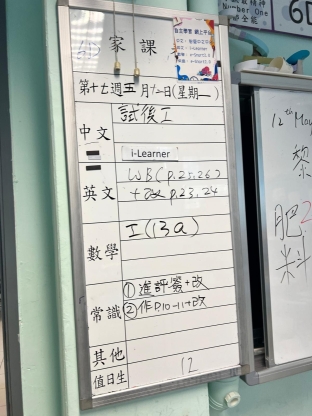 家課
自主學習 網上平台
i-Learner
第十七週五月十二日(星期一)
中文 試後工
i-Learner
英文 WB(p.25,26)
+改p.23,24
數學 工(13a)
常識 ①進評簽+改
②作p.10-11+改
其他
值日生 12
Number One
6D
12th May
黎
肥2
料